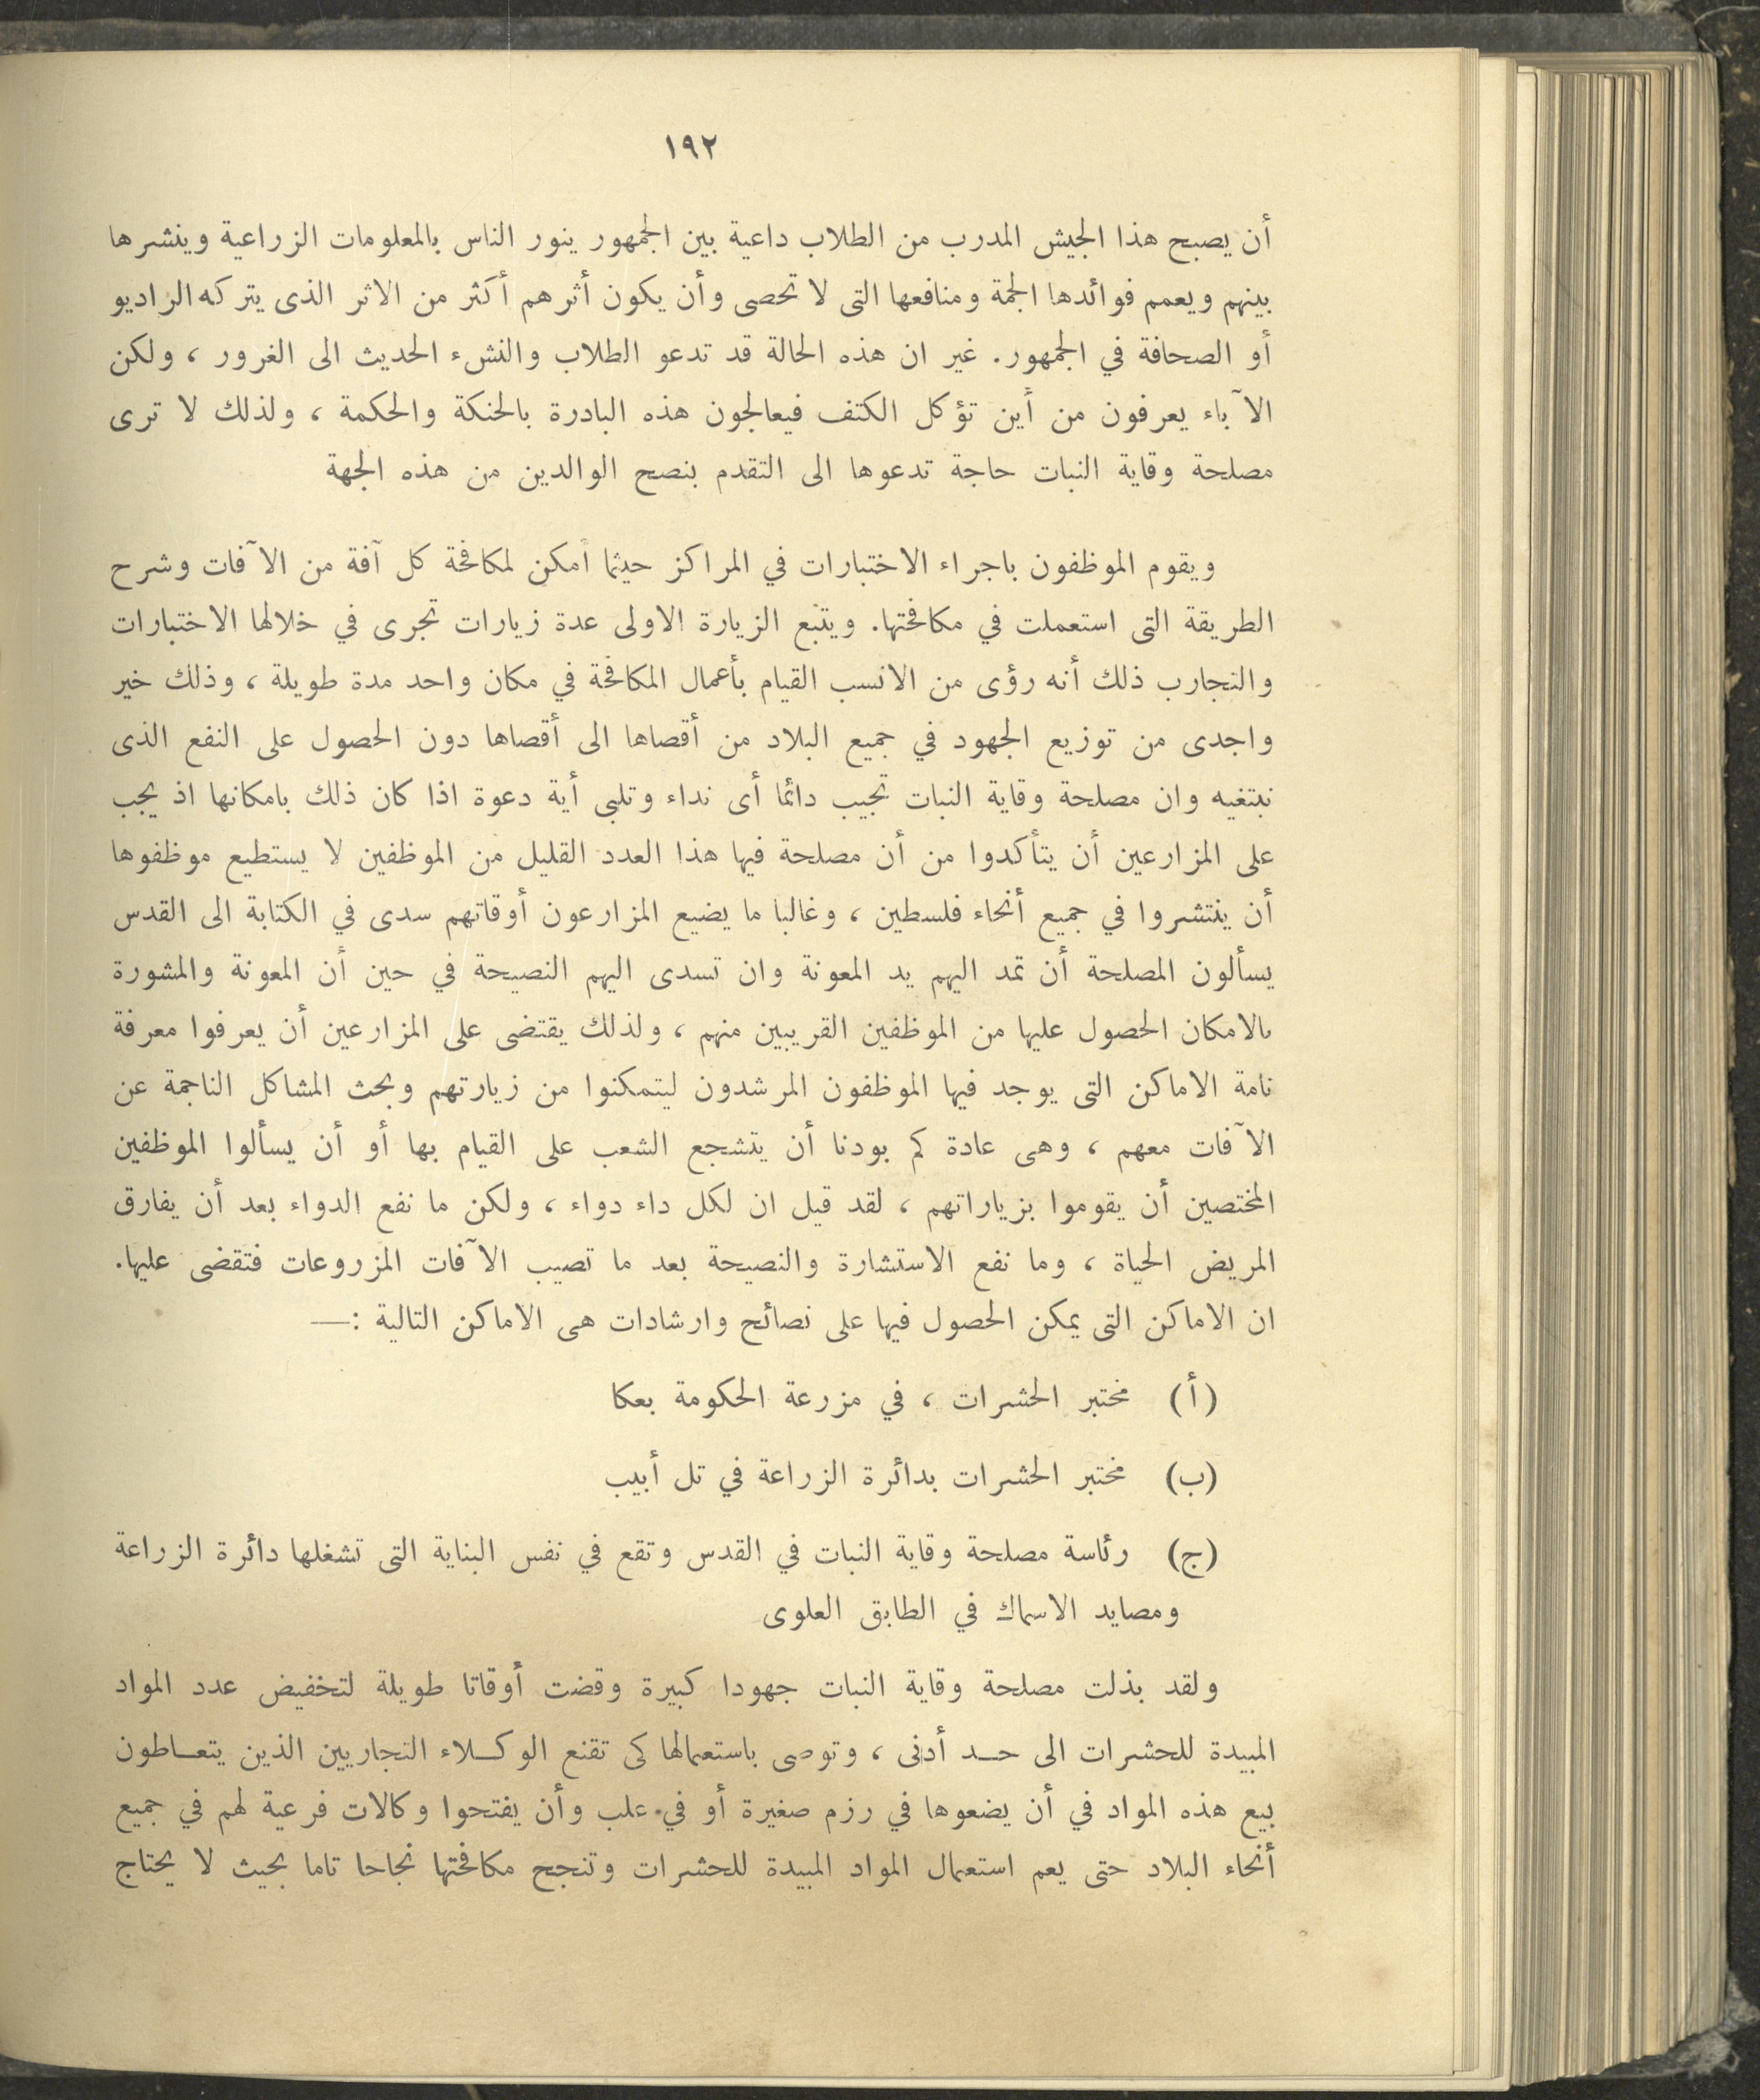 ١٩٢
أن يصبح هذا الجيش المدرب من الطلاب داعية بين الجمهور ينور الناس بالمعلومات الزراعية وينشرها
بينهم ويعمم فوائدها الجمة ومنافعها التى لا تحصى وأن يكون أثرهم أكثر من الاثر الذى يتركه الراديو
أو الصحافة في الجمهور. غير ان هذه الحالة قد تدعو الطلاب والنشء الحديث الى الغرور ، ولكن
الآباء يعرفون من أين تؤكل الكتف فيعالجون هذه البادرة بالحنكة والحكمة ، ولذلك لا ترى
مصلحة وقاية النبات حاجة تدعوها الى التقدم بنصح الوالدين من هذه الجهة
ويقوم الموظفون باجراء الاختبارات في المراكز حيثما أمكن لمكافحة كل آفة من الآفات وشرح
الطريقة التى استعملت في مكافحتها. ويتبع الزيارة الاولى عدة زيارات تجرى في خلالها الاختبارات
والتجارب ذلك أنه رؤى من الانسب القيام بأعمال المكافحة في مكان واحد مدة طويلة ، وذلك خير
واجدى من توزيع الجهود في جميع البلاد من أقصاها الى أقصاها دون الحصول على النفع الذى
نبتغيه وان مصلحة وقاية النبات تجيب دائما أى نداء وتلبى أية دعوة اذا كان ذلك بامكانها اذ يجب
على المزارعين أن يتأكدوا من أن مصلحة فيها هذا العدد القليل من الموظفين لا يستطيع موظفوها
أن ينتشروا في جميع أنحاء فلسطين ، وغالبا ما يضيع المزارعون أوقاتهم سدى في الكتابة الى القدس
يسألون المصلحة أن تمد اليهم يد المعونة وان تسدى اليهم النصيحة في حين أن المعونة والمشورة
بالامكان الحصول عليها من الموظفين القريبين منهم ، ولذلك يقتضى على المزارعين أن يعرفوا معرفة
تامة الاماكن التى يوجد فيها الموظفون المرشدون ليتمكنوا من زيارتهم وبحث المشاكل الناجمة عن
الآفات معهم ، وهى عادة كم بودنا أن يتشجع الشعب على القيام بها أو أن يسألوا الموظفين
المختصين أن يقوموا بزياراتهم ، لقد قيل ان لكل داء دواء ، ولكن ما نفع الدواء بعد أن يفارق
المريض الحياة ، وما نفع الاستشارة والنصيحة بعد ما تصيب الآفات المزروعات فتقضى عليها.
ان الاماكن التى يمكن الحصول فيها على نصائح وارشادات هى الاماكن التالية :—
(أ) مختبر الحشرات ، في مزرعة الحكومة بعكا
(ب) مختبر الحشرات بدائرة الزراعة في تل أبيب
(ج) رئاسة مصلحة وقاية النبات في القدس وتقع في نفس البناية التى تشغلها دائرة الزراعة
ومصايد الاسماك في الطابق العلوى
ولقد بذلت مصلحة وقاية النبات جهودا كبيرة وقضت أوقاتا طويلة لتخفيض عدد المواد
المبيدة للحشرات الى حـد أدنى ، وتوصى باستعمالها كى تقنع الوكـلاء التجاريين الذين يتعـاطون
بيع هذه المواد في أن يضعوها في رزم صغيرة أو في علب وأن يفتحوا وكالات فرعية لهم في جميع
أنحاء البلاد حتى يعم استعمال المواد المبيدة للحشرات وتنجح مكافحتها نجاحا تاما بحيث لا يحتاج